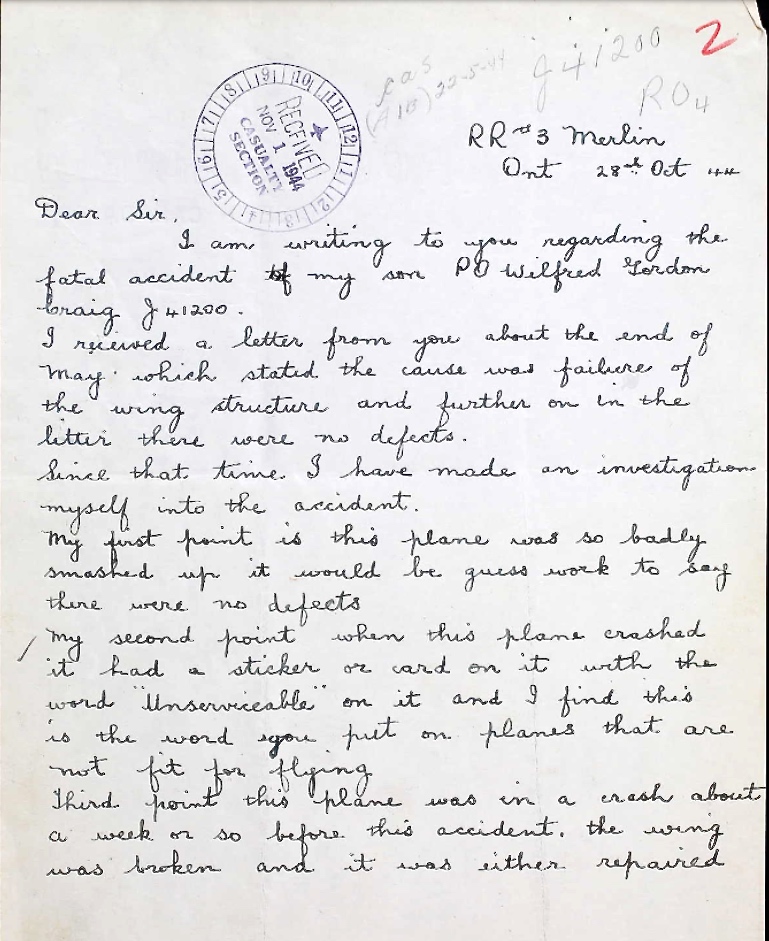 2
cas
(AIB) 22-5-44
J41200
RO4
9 10 11 12 1 2 3 4 5 6 7 8
RECEIVED
NOV 1 1944
CASUALTY
SECTION
RR #3 Merlin
Ont 28th Oct 44
Dear Sir,
I am writing to you regarding the
fatal accident of my son PO Wilfred Gordon
Craig J41200.
I received a letter from you about the end of
May. which stated the cause was failure of
the wing structure and further on in the
litter there were no defects.
Since that time. I have made an investigation
myself into the accident.
My first point is this plane was so badly
smashed up it would be guess work to say
there were no defects
My second point when this plane crashed
it had a sticker or card on it with the
word "Unserviceable" on it and I find this
is the word you put on planes that are
not fit for flying
Third point this plane was in a crash about
a week or so before this accident. the wing
was broken and it was either repaired